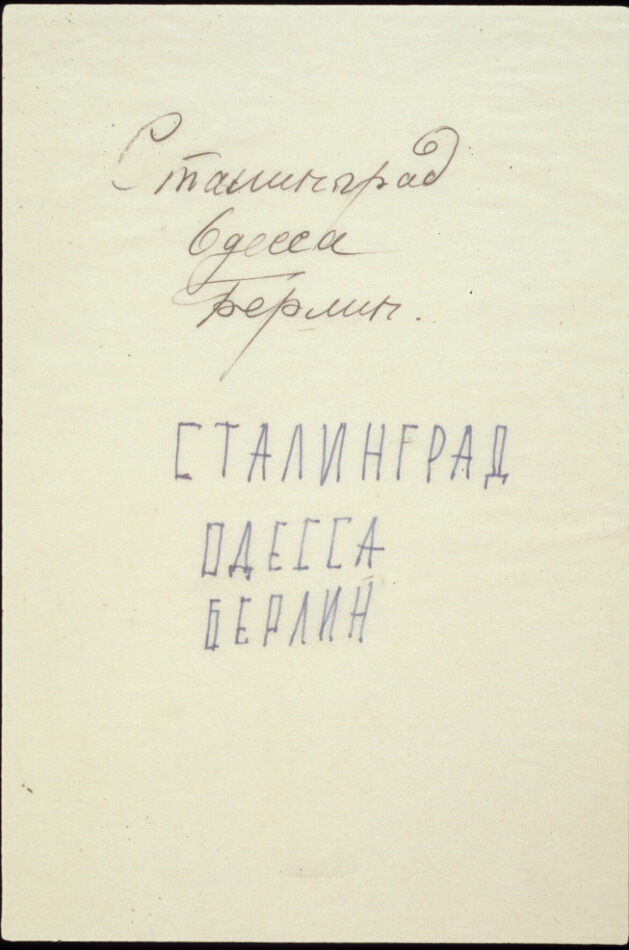 Сталинград
Одесса
Берлин.
СТАЛИНГРАД
ОДЕССА
БЕРЛИН